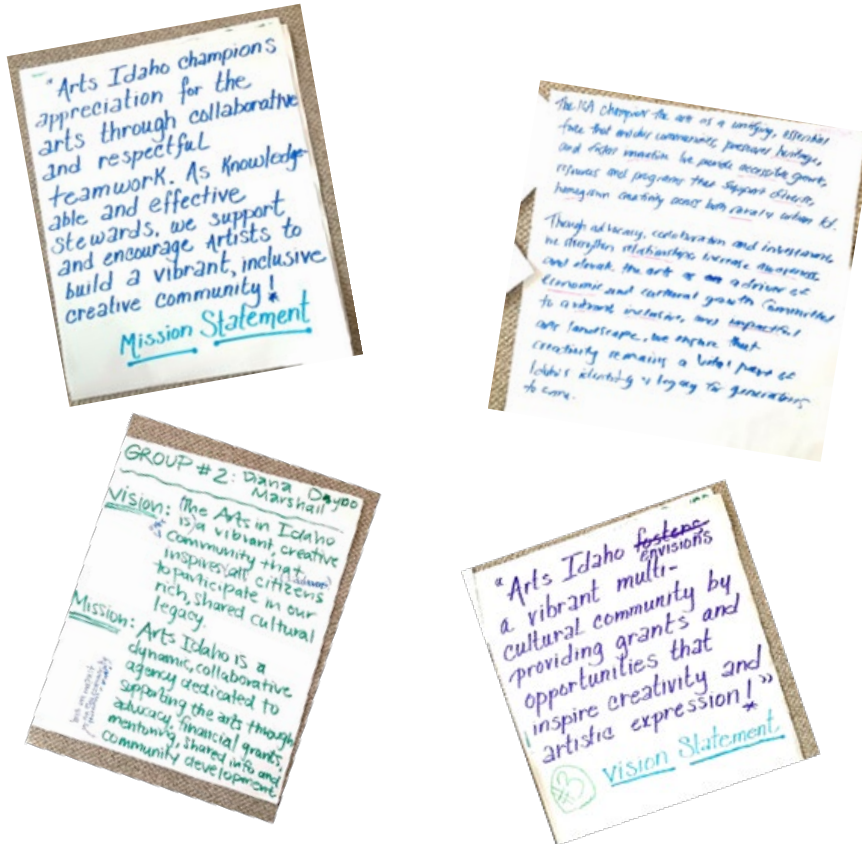 "Arts Idaho champions
appreciation for the
arts through collaborative
and respectful
teamwork. As Knowledge-
able and effective
stewards, we support
and encourage Artists to
build a vibrant, inclusive
creative community!
Mission Statement
The ICA champion the arts as a unifying, essential
force that communities, heritage,
and foster innovation We provide accessible grants,
resources and programs that support diverse,
homegrown creativity across both rural & urban Id.
Through advocacy, collaboration and
we strengthen relationships increase awareness
and elevate the arts as a driver of
Economic and cultural growth Committed
to inclusive, and impactful
arts landscape, we ensure that
creativity remains a vital part of
Idaho's identity & legacy for generations
to come.
GROUP #2: Diana Dayoo
Marshall
Vision: The Arts in Idaho
is a vibrant, creative
community that
inspires all citizens
to participate in our
rich, shared cultural
legacy.
Mission: Arts Idaho is a
dynamic, collaborative
agency dedicated to
supporting the arts through
advocacy, financial grants,
mentoring, shared info and
community development
"Arts Idaho fosters
envisions
a vibrant multi-
cultural community by
providing grants and
opportunities that
inspire creativity and
artistic expression!"
Vision Statement
#3